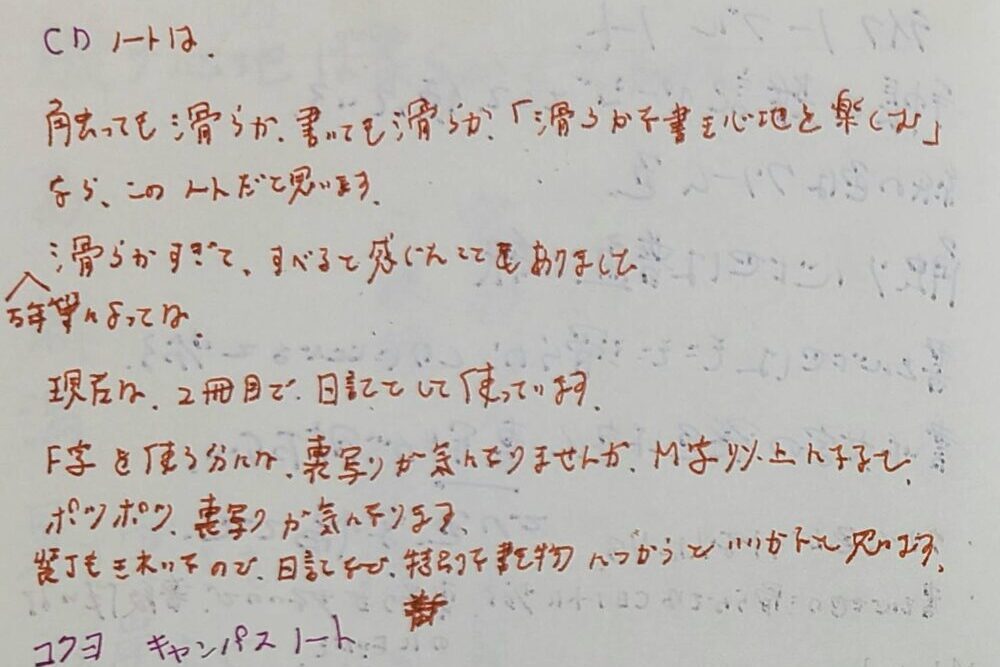 CDノートは、
触っても滑らか、書いても滑らか、「滑らかな書き心地を楽しむ」
なら、このノートだと思います。
滑らかすぎて、すべると感じたこともありました
万年筆によっては、
現在は、2冊目で、日記として使っています。
F字を使う分には、裏写りが気になりませんが、M字り以上になると、
ポツポツ、裏写りが気になります。
装丁もきれいなので、日記など、特別な書き物につかうといいかなと思います。
コクヨ キャンパスノート